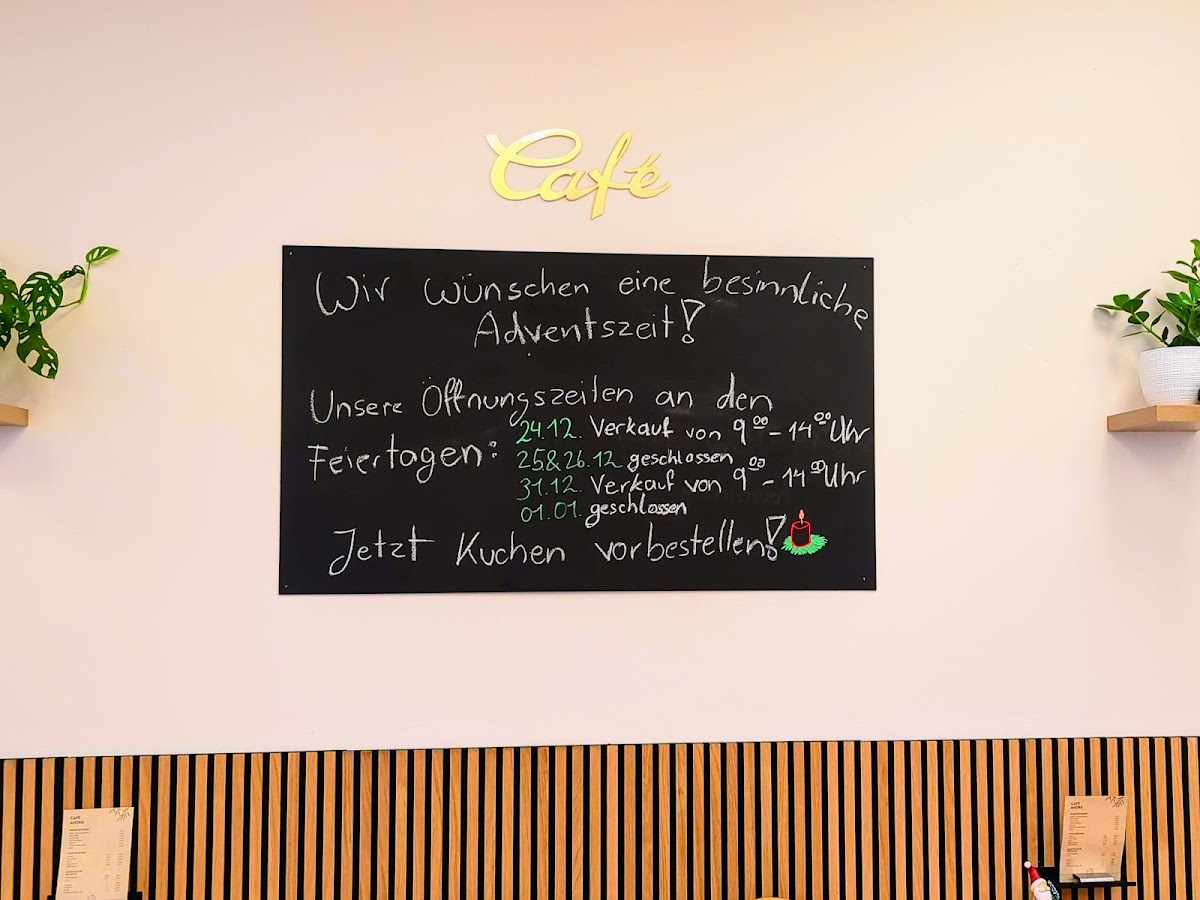 Café
Wir wünschen eine besinnliche
Adventszeit!
Unsere Öffnungszeiten an den
Feiertagen:
24.12. Verkauf von 9⁰⁰ - 14⁰⁰ Uhr
25&26.12 geschlossen
31.12. Verkauf von 9⁰⁰ - 14⁰⁰ Uhr
01.01. geschlossen
Jetzt Kuchen vorbestellen!
CAFÉ
CAFÉ